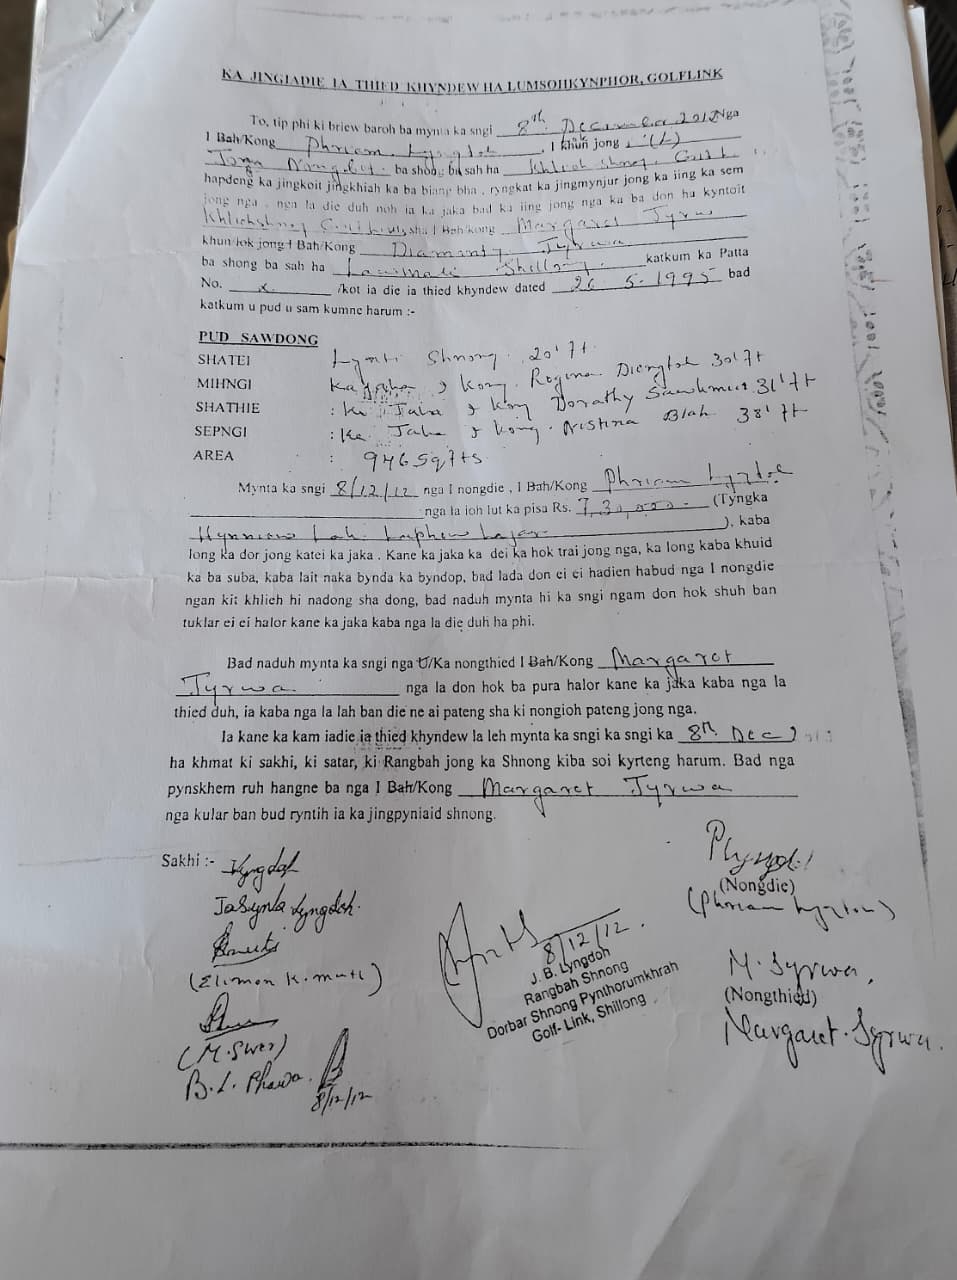 KA JINGIADIE IA THIED KHYNDEW HA LUMSOHKYNPHOR, GOLFLINK
To, tip phi ki briew baroh ba mynta ka sngi 8th December 2012 Nga
I Bah/Kong Phriam Lyngdoh, I khun jong (L)
ba shong ba sah ha Khlieh Shnong
hapdeng ka jingkoit jingkhiah ka ba biang bha, ryngkat ka jingmynjur jong ka iing ka sem
jong nga, nga la die duh noh ia ka jaka bad ka iing jong nga ka ba don ha kyntoit
Khliehshnong sha I Bah/kong Margaret Tyrwa
khun/lok jong I Bah/Kong Diamanty Tyrwa
ba shong ba sah ha Lawmali Shillong. katkum ka Patta
No. x /kot ia die ia thied khyndew dated 26-5-1995 bad
katkum u pud u sam kumne harum :-
PUD SAWDONG
SHATEI Lynti Shnong. 20'ft.
MIHNGI Kong. Rogina Diengdoh 30'ft
SHATHIE : Ka Jaka Kong Dorathy Sawkmie 31'ft
SEPNGI : Ka Jaka Kong. Aristina Blah 38'ft
AREA : 946 Sq fts.
Mynta ka sngi 8/12/12 nga I nongdie, I Bah/Kong Phriam Lyngdoh
nga la ioh lut ka pisa Rs. 7,30,000=- (Tyngka
Hynniew Lak Laphew Hajar), kaba
long ka dor jong katei ka jaka. Kane ka jaka ka dei ka hok trai jong nga, ka long kaba khuid
ka ba suba, kaba lait naka bynda ka byndop, bad lada don ei ei hadien habud nga I nongdie
ngan kit khlieh hi nadong sha dong, bad naduh mynta hi ka sngi ngam don hok shuh ban
tuklar ei ei halor kane ka jaka kaba nga la die duh ha phi.
Bad naduh mynta ka sngi nga U/Ka nongthied I Bah/Kong Margaret
Tyrwa. nga la don hok ba pura halor kane ka jaka kaba nga la
thied duh, ia kaba nga la lah ban die ne ai pateng sha ki nongioh pateng jong nga.
Ia kane ka kam iadie ia thied khyndew la leh mynta ka sngi ka sngi ka 8th Dec
ha khmat ki sakhi, ki satar, ki Rangbah jong ka Shnong kiba soi kyrteng harum. Bad nga
pynskhem ruh hangne ba nga I Bah/Kong Margaret Tyrwa
nga kular ban bud ryntih ia ka jingpyniaid shnong.
Sakhi :- Lyngdoh
Jasynta Lyngdoh.
(Elimon K. mutt)
(M. Swer)
B.L. Phawa.
8/12/12
8/12/12.
J. B. Lyngdoh
Rangbah Shnong
Dorbar Shnong Pynthorumkhrah
Golf- Link, Shillong
(Nongdie)
(Phriam Lyngdoh)
M. Syrwa,
(Nongthied)
Margaret. Syrwa.